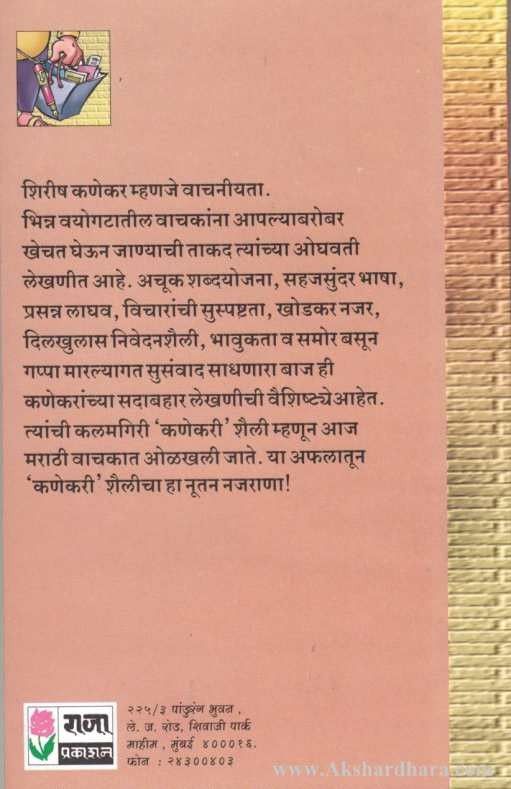 शिरीष कणेकर म्हणजे वाचनीयता.
भिन्न वयोगटातील वाचकांना आपल्याबरोबर
खेचत घेऊन जाण्याची ताकद त्यांच्या ओघवती
लेखणीत आहे. अचूक शब्दयोजना, सहजसुंदर भाषा,
प्रसन्न लाघव, विचारांची सुस्पष्टता, खोडकर नजर,
दिलखुलास निवेदनशैली, भावुकता व समोर बसून
गप्पा मारल्यागत सुसंवाद साधणारा बाज ही
कणेकरांच्या सदाबहार लेखणीची वैशिष्ट्ये आहेत.
त्यांची कलमगिरी ‘कणेकरी’ शैली म्हणून आज
मराठी वाचकात ओळखली जाते. या अफलातून
‘कणेकरी’ शैलीचा हा नूतन नजराणा!
राजा
प्रकाशन
२२५/३ पांडुरंग भुवन,
ले. ज. रोड, शिवाजी पार्क
माहीम, मुंबई ४०००१६.
फोन : २४३००४०३
www.Akshardhara.com